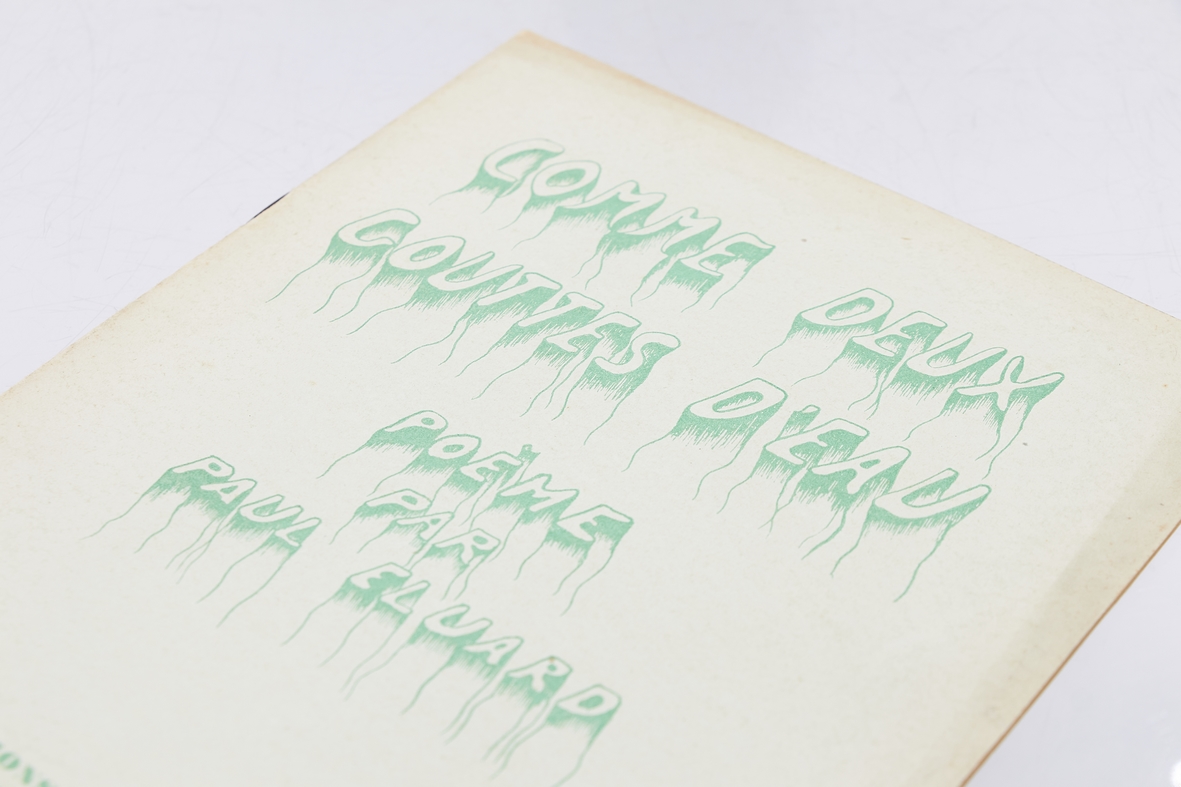 COMME DEUX
GOUTTES D'EAU
POÈME
PAR
PAUL ELUARD